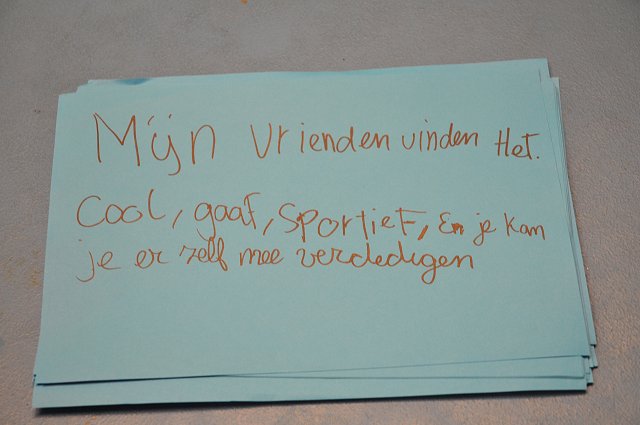 Mijn vrienden vinden Het.
Cool, gaaf, sportief, En je kan
je er zelf mee verdedigen